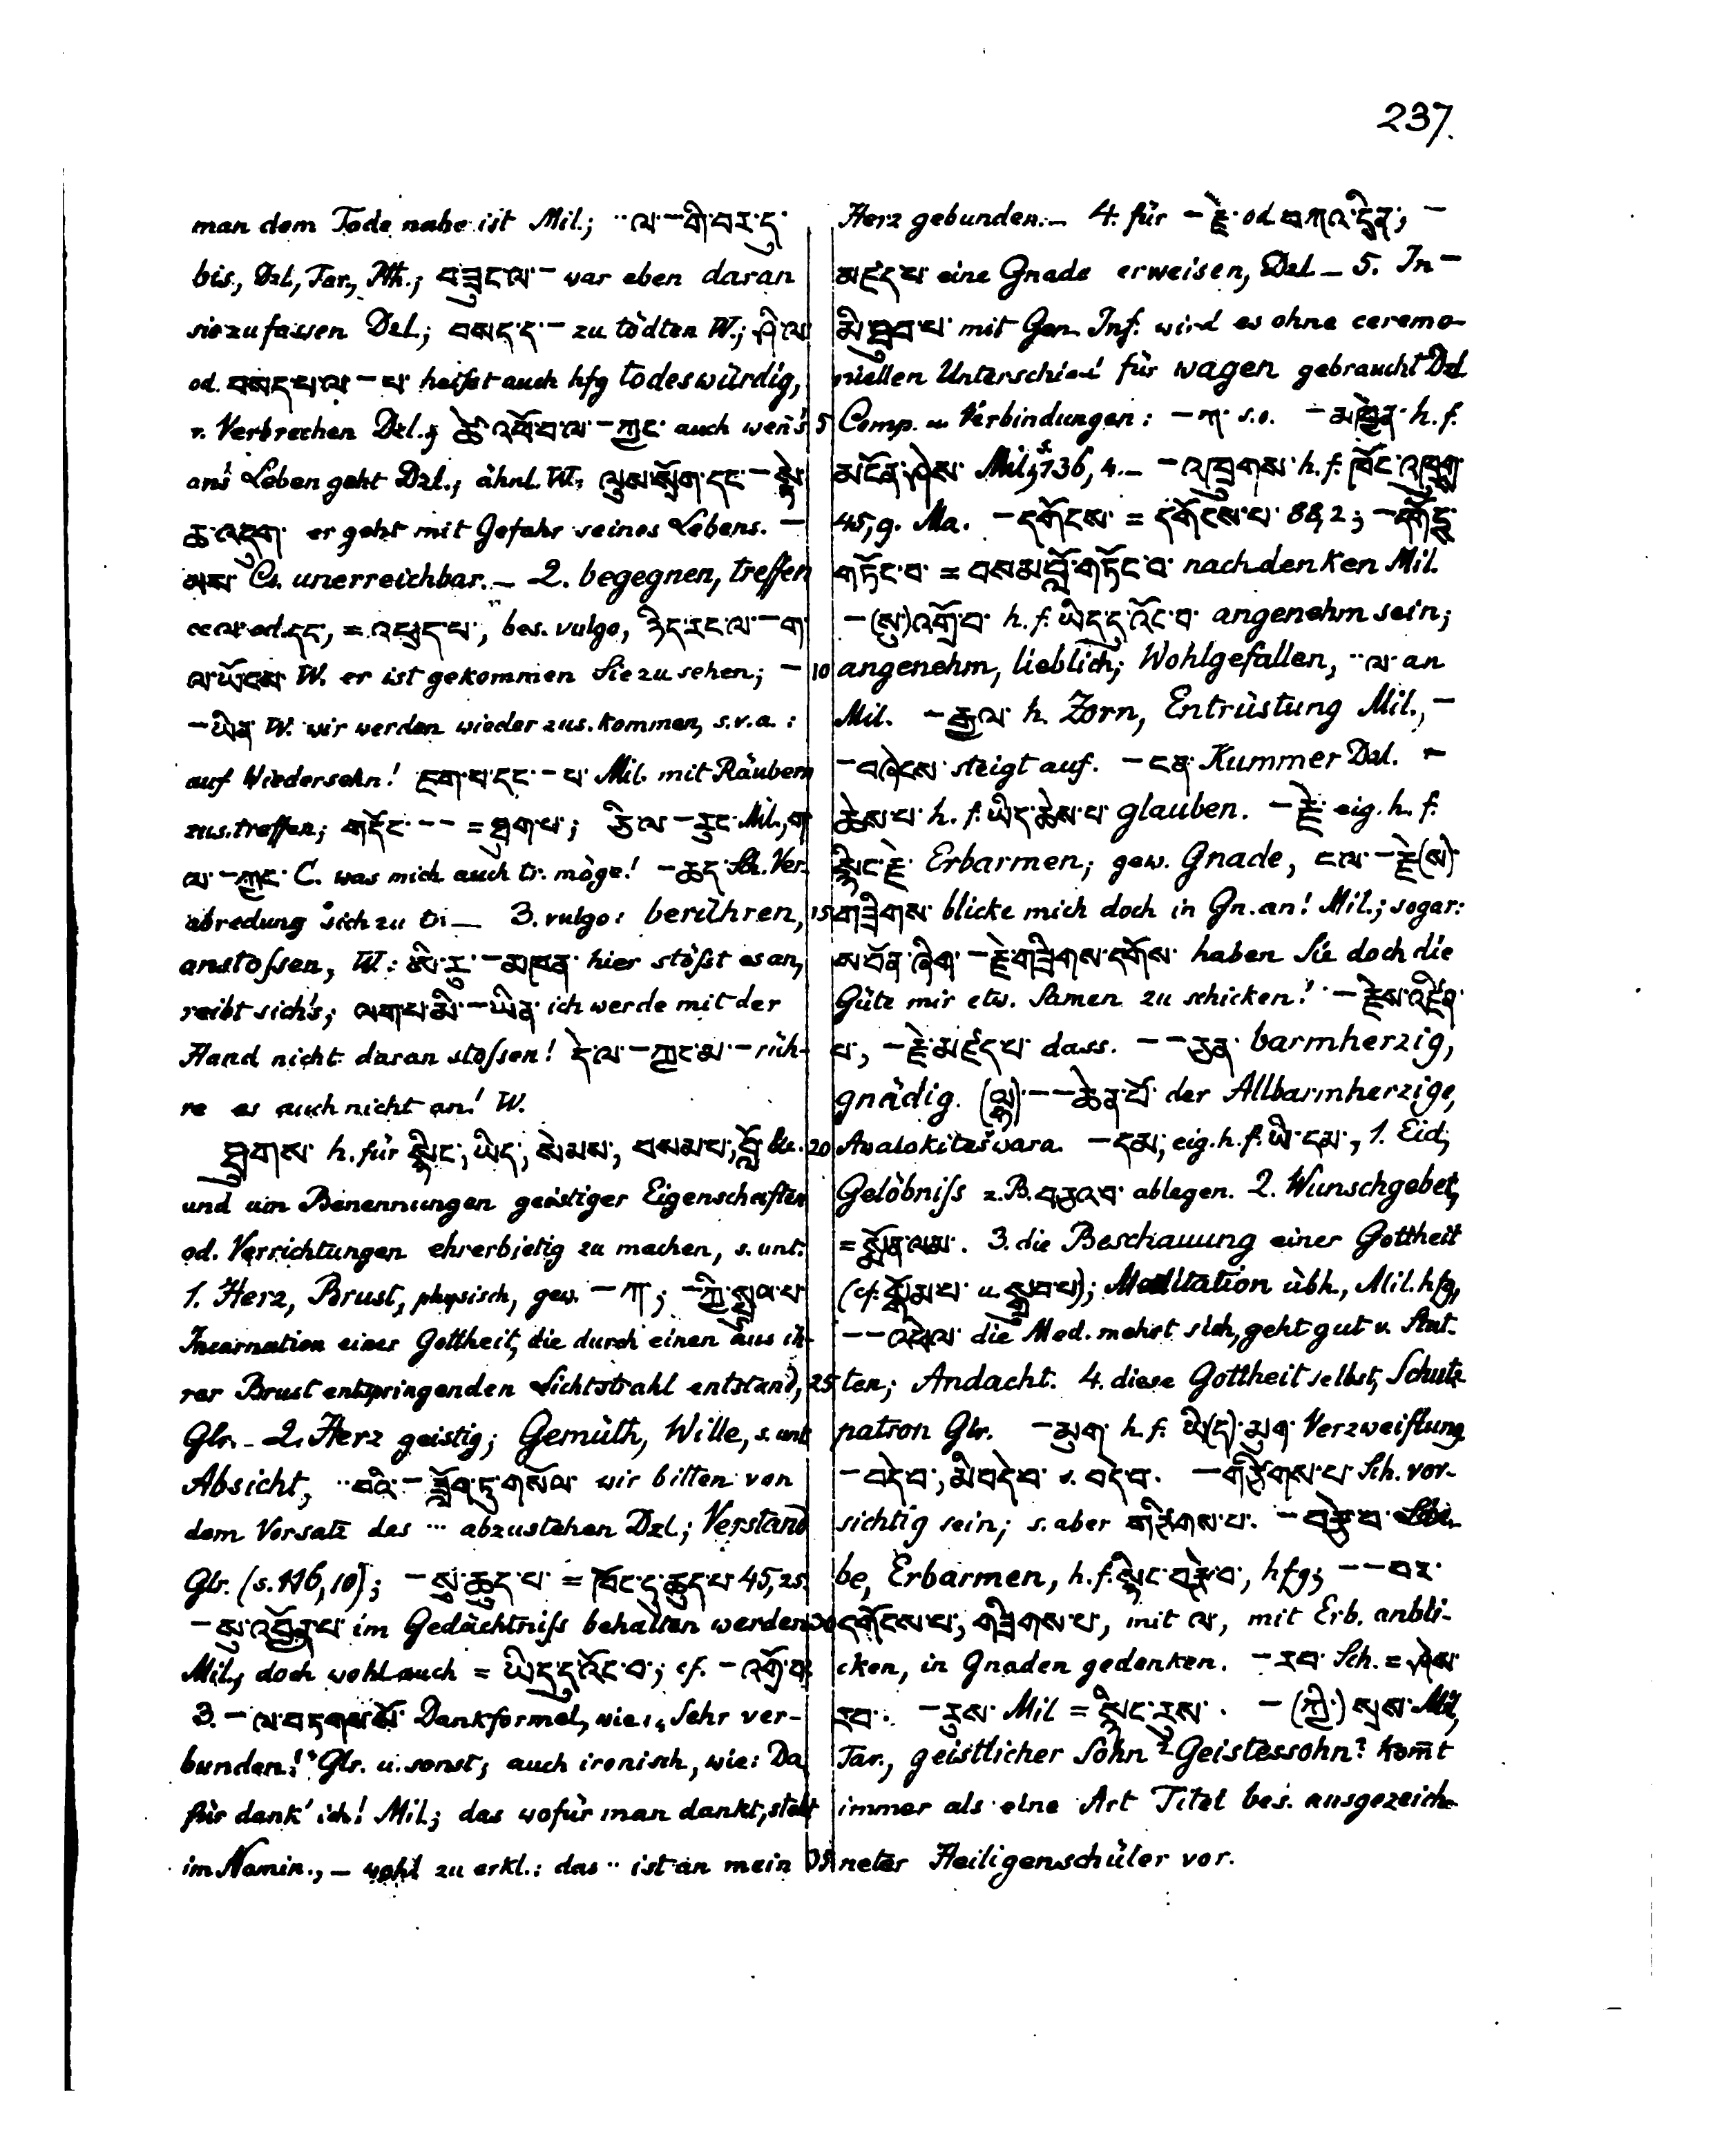 237.
man dem Tode nahe ist Mil.; ¨ལ་ – གི་བར་དུ་
bis, Dzl., Tar., Pth.; བཟུང་ལ་ – war eben daran
sie zu fassen Dzl.; བསད་ད་ – zu tödten W.; ཤི་ལ་
od. བསད་པ་ལ་ – པ་ heißt auch hfg todeswürdig,
v. Verbrechen Dzl.; ཚེ་འཕོ་བ་ལ་ – ཀྱང་ auch wen's
an's Leben geht Dzl.; ähnl. W.; ལུས་སྲོག་དང་ – སྟེ་
ཆ་འདུག་ er geht mit Gefahr seines Lebens. –
མས་ Cs. unerreichbar. – 2. begegnen, treffen
c. ལ་ od. དང་, = འཕྲད་པ་, bes. vulgo, ཉིད་རང་ལ་ – ག་
ལ་ཡོངས་ W. er ist gekommen Sie zu sehen; –
– ཡིན་ W. wir werden wieder zus. kommen, s. v. a.:
auf Wiedersehn! ཇག་པ་དང་ – པ་ Mil. mit Räubern
zus. treffen; གདོང་ – – = ཐུག་པ་; ཅི་ལ་ – རུང་ Mil., ག
ལ་ – ཀྱང་ C. was mich auch tr. möge! – ཆད་ Sch. Ver-
abredung sich zu tr. – 3. vulgo: berühren,
anstoßen, W.: ཨི་རུ་ – མཁན་ hier stößt es an,
reibt sich's; ལག་པ་མི་ – ཡིན་ ich werde mit der
Hand nicht daran stoßen! དེ་ལ་ – ཀྱང་མ་ – rüh-
re es auch nicht an! W.
ཐུགས་ h. für སྙིང་, ཡིད་, སེམས་, བསམ་པ་, བློ་ &c.
und um Benennungen geistiger Eigenschaften
od. Verrichtungen ehrerbietig zu machen, s. unt.
1. Herz, Brust, physisch, gew. – ཀ; – ཀྱི་སྤྲུལ་པ་
Incarnation einer Gottheit, die durch einen aus ih-
rer Brust entspringenden Lichtstrahl entstand,
Glr. – 2. Herz geistig; Gemüth, Wille, s. unt
Absicht, ¨བའི་ – ཟློག་ཏུ་གསོལ་ wir bitten von
dem Vorsatz des ··· abzustehen Dzl.; Verstand
Glr. (s. 116, 10); – སུ་ཆུད་པ་ = ཁོང་དུ་ཆུད་པ་ 45, 25.
– སུ་འབྱོན་པ་ im Gedächtniß behalten werden
Mil., doch wohl auch = ཡིད་དུ་འོང་བ་; cf. – འགྲོ་བ་
3. – ལ་བཏགས་སོ་ Dankformel, wie: „Sehr ver-
bunden!“ Glr. u. sonst; auch ironisch, wie: Da
für dank' ich! Mil.; das wofür man dankt, steht
im Nomin., – wohl zu erkl.: das ¨ ist an mein
Herz gebunden. – 4. für – རྗེ་ od བཀའ་དྲིན་; –
མཛད་པ་ eine Gnade erweisen, Dzl. – 5. In –
མི་ཐུབ་པ་ mit Gen. Inf. wird es ohne ceremo-
niellen Unterschied für wagen gebraucht Dzl.
5 Comp. u. Verbindungen: – ཀ་ s. o. – མཁྱེན་ h. f.
མངོན་ཤེས་ Mil., s. 136, 4. – – འཁྲུགས་ h. f. ཁོང་འཁྲུག་
45, 9. Ma. – དགོངས་ = དགོངས་པ་ 88, 2; – བགྲོད་
གཏོང་བ་ = བསམ་བློ་གཏོང་བ་ nachdenken Mil.
– (སུ་)འགྲོ་བ་ h. f. ཡིད་དུ་འོང་བ་ angenehm sein;
10 angenehm, lieblich; Wohlgefallen, ¨ལ་ an
Mil. – རྒྱལ་ h. Zorn, Entrüstung Mil., –
– བཞེངས་ steigt auf. – ངན་ Kummer Dzl. –
ཆེས་པ་ h. f. ཡིད་ཆེས་པ་ glauben. – རྗེ་ eig. h. f.
སྙིང་རྗེ་ Erbarmen; gew. Gnade, ང་ལ་ – རྗེ་(ས)་
15 གཟིགས་ blicke mich doch in Gn. an! Mil.; sogar:
ས་བོན་ཞིག་ – རྗེ་གཟིགས་དགོས་ haben Sie doch die
Güte mir etw. Samen zu schicken! – རྗེས་འཛིན་
པ་, – རྗེ་མཛད་པ་ dass. – – ཅན་ barmherzig,
gnädig. (ལྷ་) – – ཆེན་པོ་ der Allbarmherzige,
20 Avalokiteśwara. – དམ་, eig. h. f. ཡི་དམ་, 1. Eid,
Gelöbniß z. B. བཅའ་བ་ ablegen. 2. Wunschgebet,
= སྨོན་ལམ་. 3. die Beschauung einer Gottheit
(cf. སྒོམ་པ་ u. སྒྲུབ་པ་); Meditation übh., Mil. hfg,
– – འཕེལ་ die Med. mehrt sich, geht gut v. Stat-
25 ten; Andacht. 4. diese Gottheit selbst, Schutz-
patron Glr. – མུག་ h. f. ཡི(ད)་མུག་ Verzweiflung
– བདེ་བ་, མི་བདེ་བ་ s. བདེ་བ་. – གཟིགས་པ་ Sch. vor-
sichtig sein; s. aber གཟིགས་པ་. – བརྩེ་བ་ Lie-
be, Erbarmen, h. f. སྙིང་བརྩེ་བ་, hfg; – – བར་
30 དགོངས་པ་, གཟིགས་པ་, mit ལ་, mit Erb. anbli-
cken, in Gnaden gedenken. – རབ་ Sch. = ཤེས་
རབ་. – རུས་ Mil = སྙིང་རུས་. – (ཀྱི་) སྲས་ Mil,
Tar., geistlicher Sohn? Geistessohn? kom̄t
immer als eine Art Titel bes. ausgezeich-
35 neter Heiligenschüler vor.